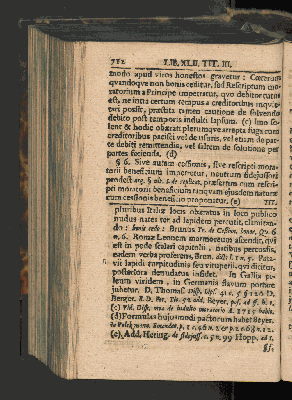 712 LIB. XLII. TIT. III.
modo apud viros honestos gravetur : Cæterum
quandoque non bonis ceditur, sed Rescriptum mo-
ratorium a Principe impetratur, quo debitor tutus
est, ne intra certum tempus a creditoribus inqui-
tari possit, præstita tamen cautione de solvendo
debito post temporis indulti lapsum. (c) Imo so-
lent & hodie obærati plerumque arrepta fuga cum
creditoribus pacisci vel de usuris, vel etiam de par-
te debiti remittendis, vel saltem de solutione per
partes facienda. (d)
§ 6. Sive autem cessionis, sive rescripti mora-
torii beneficium impetretur, neutrum fidejussori
prodest arg. § ult. I. de replicat. præsertim cum rescri-
pti moratorii beneficium tanquam ejusdem naturæ
cum cessionis beneficio proponatur. (e)
TIT.
pluribus Italiæ locis obæratus in loco publico
nudus nates ter ad lapidem percutit, claman-
do : bonis cedo : Brunus Tr. de Cession. bonor. Qu. 6
n. 6. Romæ Leonem marmoreum ascendit, qui
est in pede scalæ capitolii, natibus percussis,
eadem verba proferens, Brun. dict. l. n. 5. Pata-
vii lapidi turpitudinis seu vituperii, qui dicitur,
posteriora denudatus insidet. In Gallia pi-
leum viridem, in Germania flavum portare
jubetur. D. Thomas. Diss.
Berger. Beyer.
(c) Vid. Diss. mea de indulto moratorio A. 1715 habita.
(d) Formulas hujusmodi pactorum habet Beyer.
(e) Add. Hering. de fidejuss. Hopp. ad I.